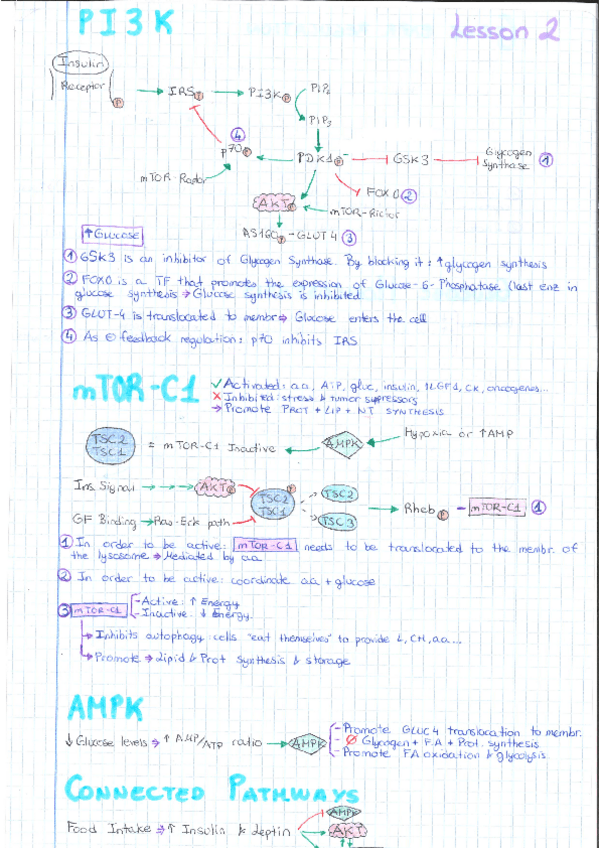 PI3K
Lesson 2
Insulin
Receptor P
IRS P
PI3K P
PiP2
PiP3
4
p70 P
PDK1 P
GSK3
Glycogen Synthase 1
mTOR-
AKT P
FOXO 2
mTOR-Rictor
AS160 P - GLUT4 3
↑Glucose
1 GSK3 is an inhibitor of Glycogen Synthase. By blocking it: ↑glycogen synthesis
2 FOXO is a TF that promotes the expression of Glucose-6-Phosphatase (last enz in
glucose synthesis → Glucose synthesis is inhibited
3 GLUT-4 is translocated to membr → Glucose enters the cell
4 As ⊖ feedback regulation: p70 inhibits IRS
mTOR-C1
✓ Activated: aa, ATP, gluc, insulin, CK, oncogenes...
✗ Inhibited: stress & tumor supressors
→ Promote PROT + LIP + NT SYNTHESIS
TSC2
TSC1
= mTOR-C1 Inactive
AMPK
Hypoxia or ↑AMP
Ins Signal
AKT P
P
TSC2
TSC1
TSC2
TSC3
Rheb P - mTOR-C1 1
GF Binding → Ras-Erk path
1 In order to be active: mTOR-C1 needs to be translocated to the membr. of
the lysosome → Mediated by aa
2 In order to be active: coordinate aa + glucose
3 mTOR-C1
- Active: ↑ Energy
- Inactive: ↓ Energy.
→ Inhibits autophagy: cells "eat themselves" to provide L, CH, aa...
→ Promote → Lipid & Prot Synthesis & storage
AMPK
↓ Glucose levels → ↑ AMP/ATP ratio → AMPK
- Promote GLUC4 translocation to membr.
- Ø Glycogen + F.A + Prot. synthesis
- Promote FA oxidation & glycolysis
CONNECTED PATHWAYS
Food Intake → ↑ Insulin & leptin
AMPK
AKT